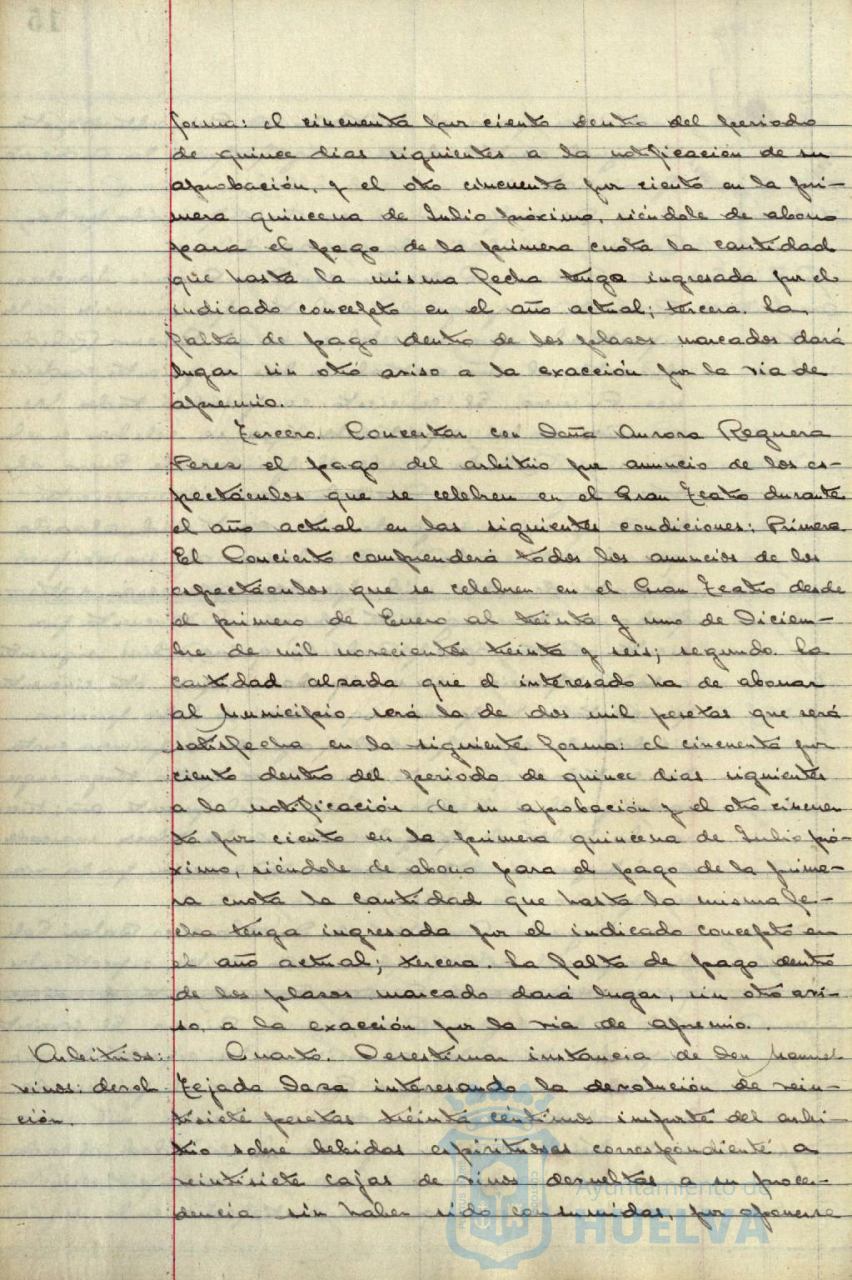 forma: el cincuenta por ciento dentro del periodo
de quince dias siguientes a la notificación de su
aprobación, y el otro cincuenta por ciento en la pri-
mera quincena de Julio próximo, siéndole de abono
para el pago de la primera cuota la cantidad
que hasta la misma fecha tenga ingresada por el
indicado concepto en el año actual; tercera. La
falta de pago dentro de los plazos marcados dará
lugar sin otro aviso a la exacción por la via de
apremio.
Tercero. Concertar con Doña Aurora Reguera
Perez el pago del arbitrio por anuncio de los es-
pectáculos que se celebren en el Gran Teatro durante
el año actual en las siguientes condiciones: Primera
El Concierto comprenderá todos los anuncios de los
espectáculos que se celebren en el Gran Teatro desde
el primero de Enero al treinta y uno de Diciem-
bre de mil novecientos treinta y seis; segundo. La
cantidad alzada que el interesado ha de abonar
al Municipio será la de dos mil pesetas que será
satisfecha en la siguiente forma: el cincuenta por
ciento dentro del periodo de quince dias siguientes
a la notificación de su aprobación y el otro cincuen
ta por ciento en la primera quincena de Julio pró-
ximo, siéndole de abono para el pago de la prime-
ra cuota la cantidad que hasta la misma fe-
cha tenga ingresada por el indicado concepto en
el año actual; tercera. La falta de pago dentro
de los plazos marcado dará lugar, sin otro avi-
so, a la exacción por la via de apremio.
Arbitrios: Cuarto. Desestimar instancia de Don Manuel
vinos: devolu Tejada Daza interesando la devolución de vein-
ción. tisiete pesetas treinta céntimos importe del arbi-
trio sobre bebidas espirituosas correspondiente a
veintisiete cajas de vinos devueltas a su proce-
dencia sin haber sido consumidas, por oponerse
Ayuntamiento de
HUELVA